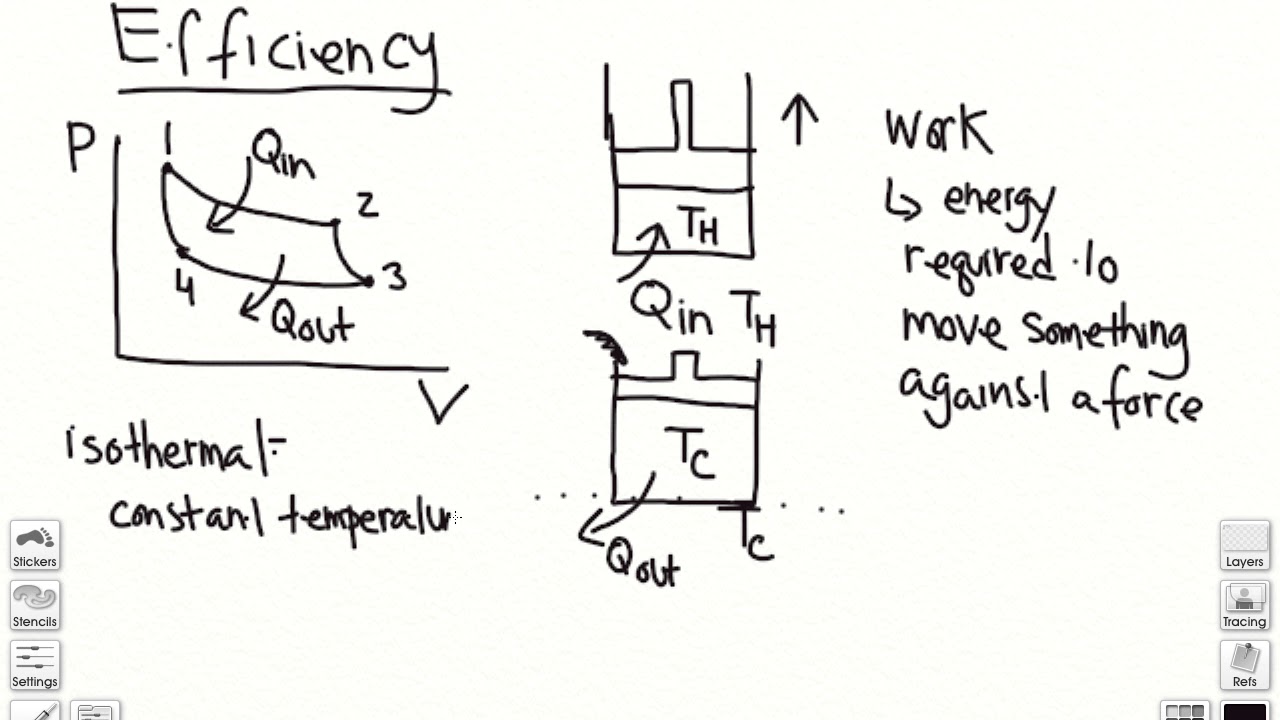 Efficiency
P
1
Qin
2
3
4
Qout
V
isothermal-
constant temperatur
TH
Qin TH
TC
TC
Qout
Work
↳ energy
required to
move something
against a force
Stickers
Stencils
Settings
Layers
Tracing
Refs